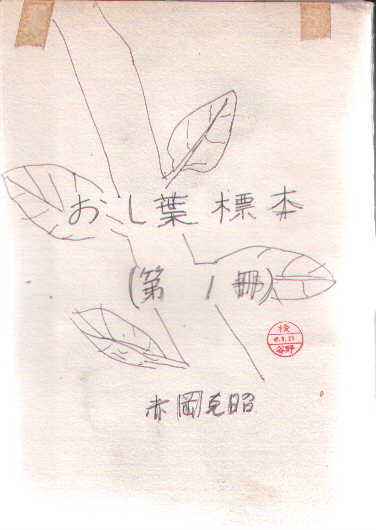 おし葉標本
(第1冊)
検
谷野
赤岡克昭